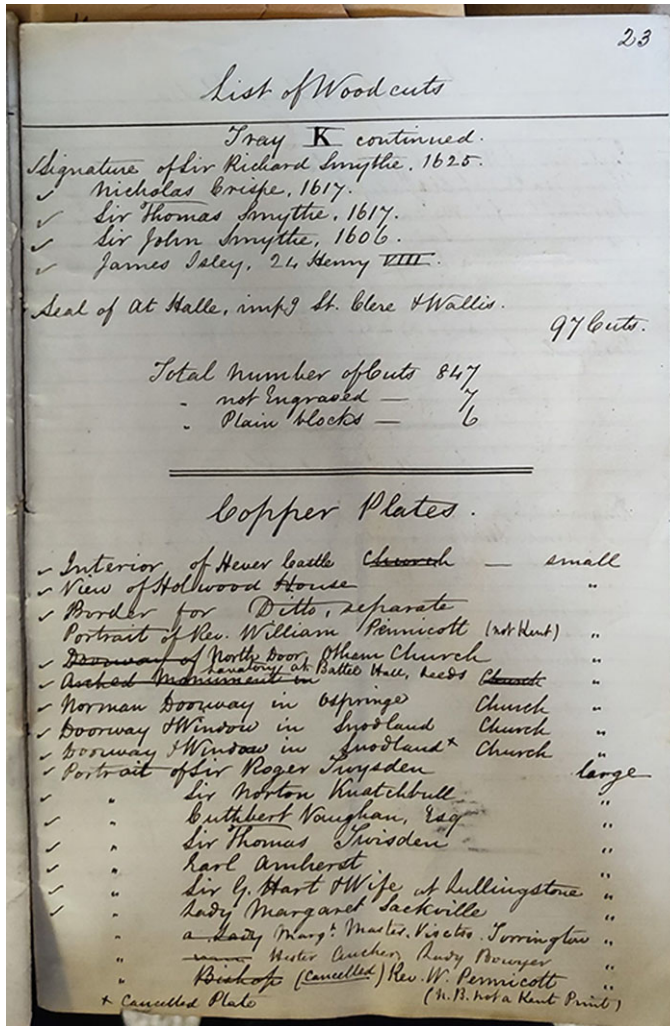 23
List of Woodcuts
Tray K continued.
✓Signature of Sir Richard Smythe, 1625.
✓ Nicholas Crispe, 1617.
✓ Sir Thomas Smythe, 1617.
✓ Sir John Smythe, 1606.
✓ James Isley, 24 Henry VIII.
Seal of At Halle, impg St. Clere & Wallis.
97 Cuts.
Total Number of Cuts 847
" not Engraved — 7
" Plain blocks — 6
Copper Plates.
✓ Interior of Hever Castle Church — small
✓ View of Holwood House "
✓ Border for Ditto, separate
Portrait of Rev. William Pennicott (not Kent) "
✓ Doorway of North Door, Otham Church "
✓ Arched Monument in Lavatory at Battle Hall, Leeds Church "
✓ Norman Doorway in Ospringe Church "
✓ Doorway & Window in Snodland Church "
✓ Doorway & Window in Snodland + Church "
✓ Portrait of Sir Roger Twysden large
✓ " Sir Norton Knatchbull "
✓ " Cuthbert Vaughan, Esq "
✓ " Sir Thomas Twisden "
✓ " Earl Amherst "
✓ " Sir G. Hart & Wife at Lullingstone "
✓ " Lady Margaret Sackville "
" a Lady Margt. Master. Visctss. Torrington "
" Hester Aucher, Lady Bowyer "
" Bishop (cancelled) Rev. W. Pennicott "
+ Cancelled Plate (N.B. not a Kent Print)